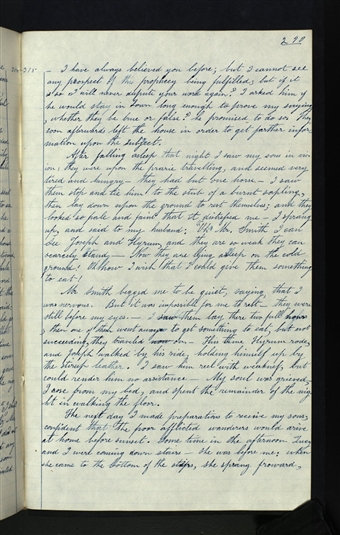 — I have always believed you before; but I cannot see
any prospect of this prophecy being fulfilled, but if it
is so I will never dispute your word again." I asked him if
he would stay in town long enough to prove my saying
, whether they be true or false? he promised to do so. They
soon afterwards left the house in order to get further infor
mation upon the subject.
After falling asleep that night I saw my sons in vis
ion; they were upon the prairie travelling, and seemed very
tired and hungry — they had but one horse — I saw
them stop and tie him to the stub of a burnt sapling,
then lay down upon the ground to rest themselves; and they
looked so pale and faint that it distressed me — I sprang
up, and said to my husband; Oh! Mr. Smith I can
see Joseph and Hyrum, and they are so weak they can
scarcely stand — Now they are lying asleep on the cold
ground! Oh how I wish that I could give them something
to eat!
Mr Smith begged me to be quiet, saying that I
was nervous. But it was impossible for me to rest — they were
still before my eyes — I saw them lay there two full hours
; then one of them went away to get something to eat, but not
succeeding, they travelled on — This time Hyrum rode,
and Joseph walked by his side, holding himself up by
the stirrup leather. I saw him reel with weakness, but
could render him no assistance — My soul was grieved,
I arose from my bed, and spent the remainder of the nig
ht in walking the floor.
The next day I made preparation to receive my sons,
confident that the poor afflicted wanderers would arrive
at home before sunset. Some time in the afternoon Lucy
and I were coming down stairs — she was before me; when
she came to the bottom of the stairs, she sprang forward,